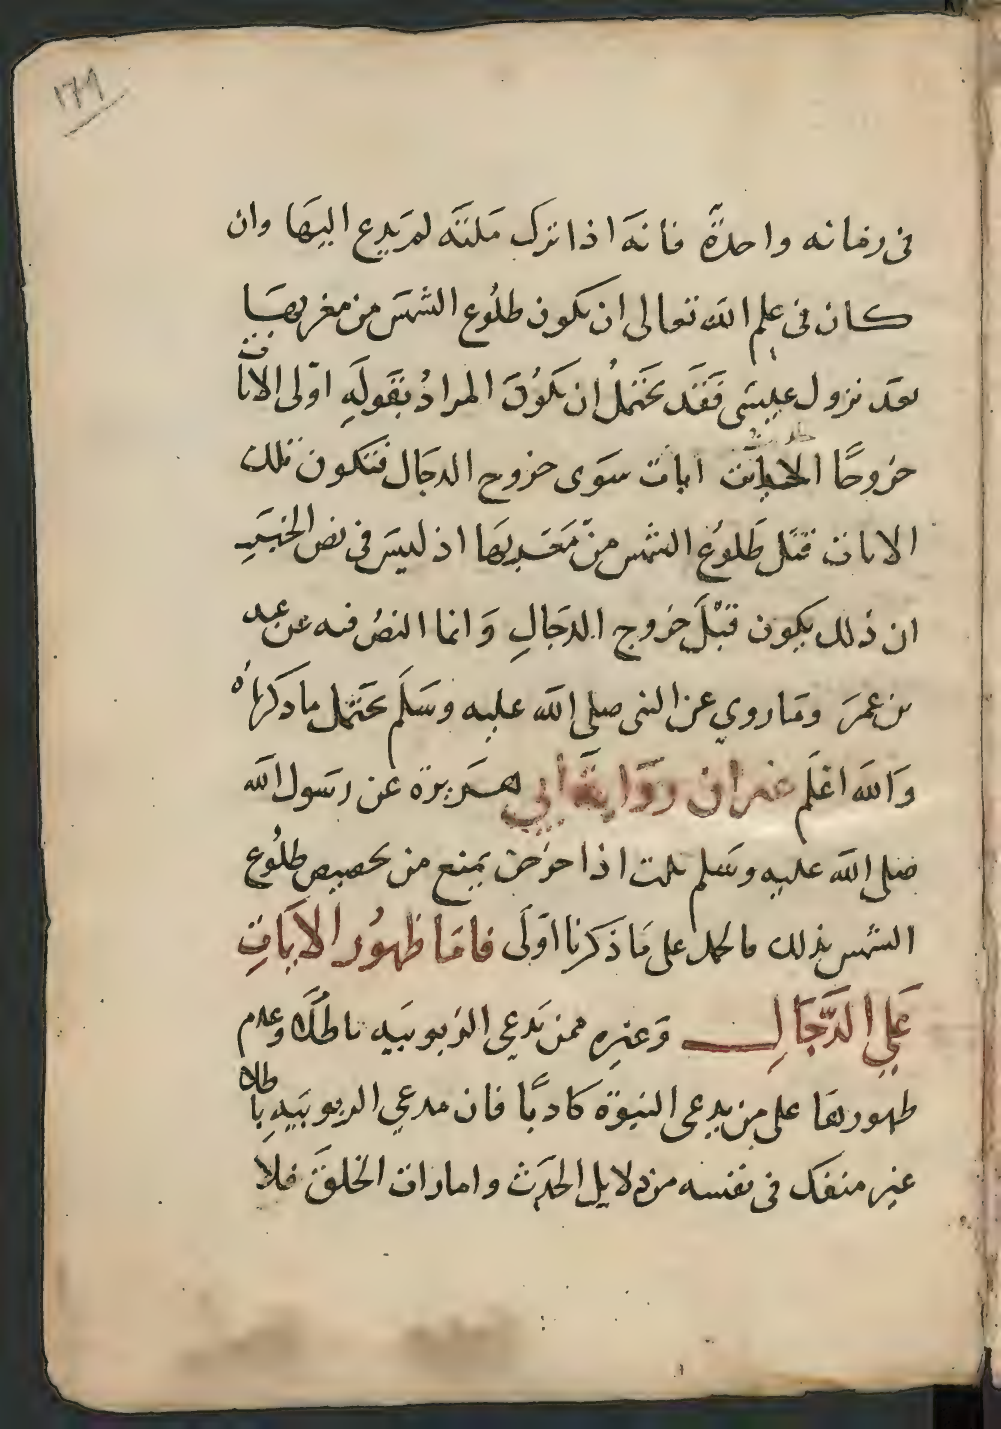 ١٧٩
فى زمانه واحدة فانه اذا ترك ملته لم يدع اليها وان
كان فى علم الله تعالى ان يكون طلوع الشمس من مغربها
بعد نزول عيسى فقد يحتمل ان يكون المراد بقوله اولى الايات
خروجا ايات سوى خروج الدجال فتكون تلك
الايات قبل طلوع الشمس من مغربها اذ ليس فى نص الخبر
ان ذلك يكون قبل خروج الدجال وانما النص فيه عن عبد
بن عمر وما روي عن النبى صلى الله عليه وسلم يحتمل ما ذكرناه
والله اعلم غير ان رواية أبي هريرة عن رسول الله
صلى الله عليه وسلم ثلاث اذا خرجن يمنع من تخصيص طلوع
الشمس بذلك فالحمل على ما ذكرنا اولى فاما ظهور الايات
على الدجال وغيره ممن يدعى الربوبيه باطلا وعدم
ظهورها على من يدعى النبوة كاذبا فان مدعي الربوبيه باطلا
غير منفك فى نفسه من دلايل الحدث وامارات الخلق فلا